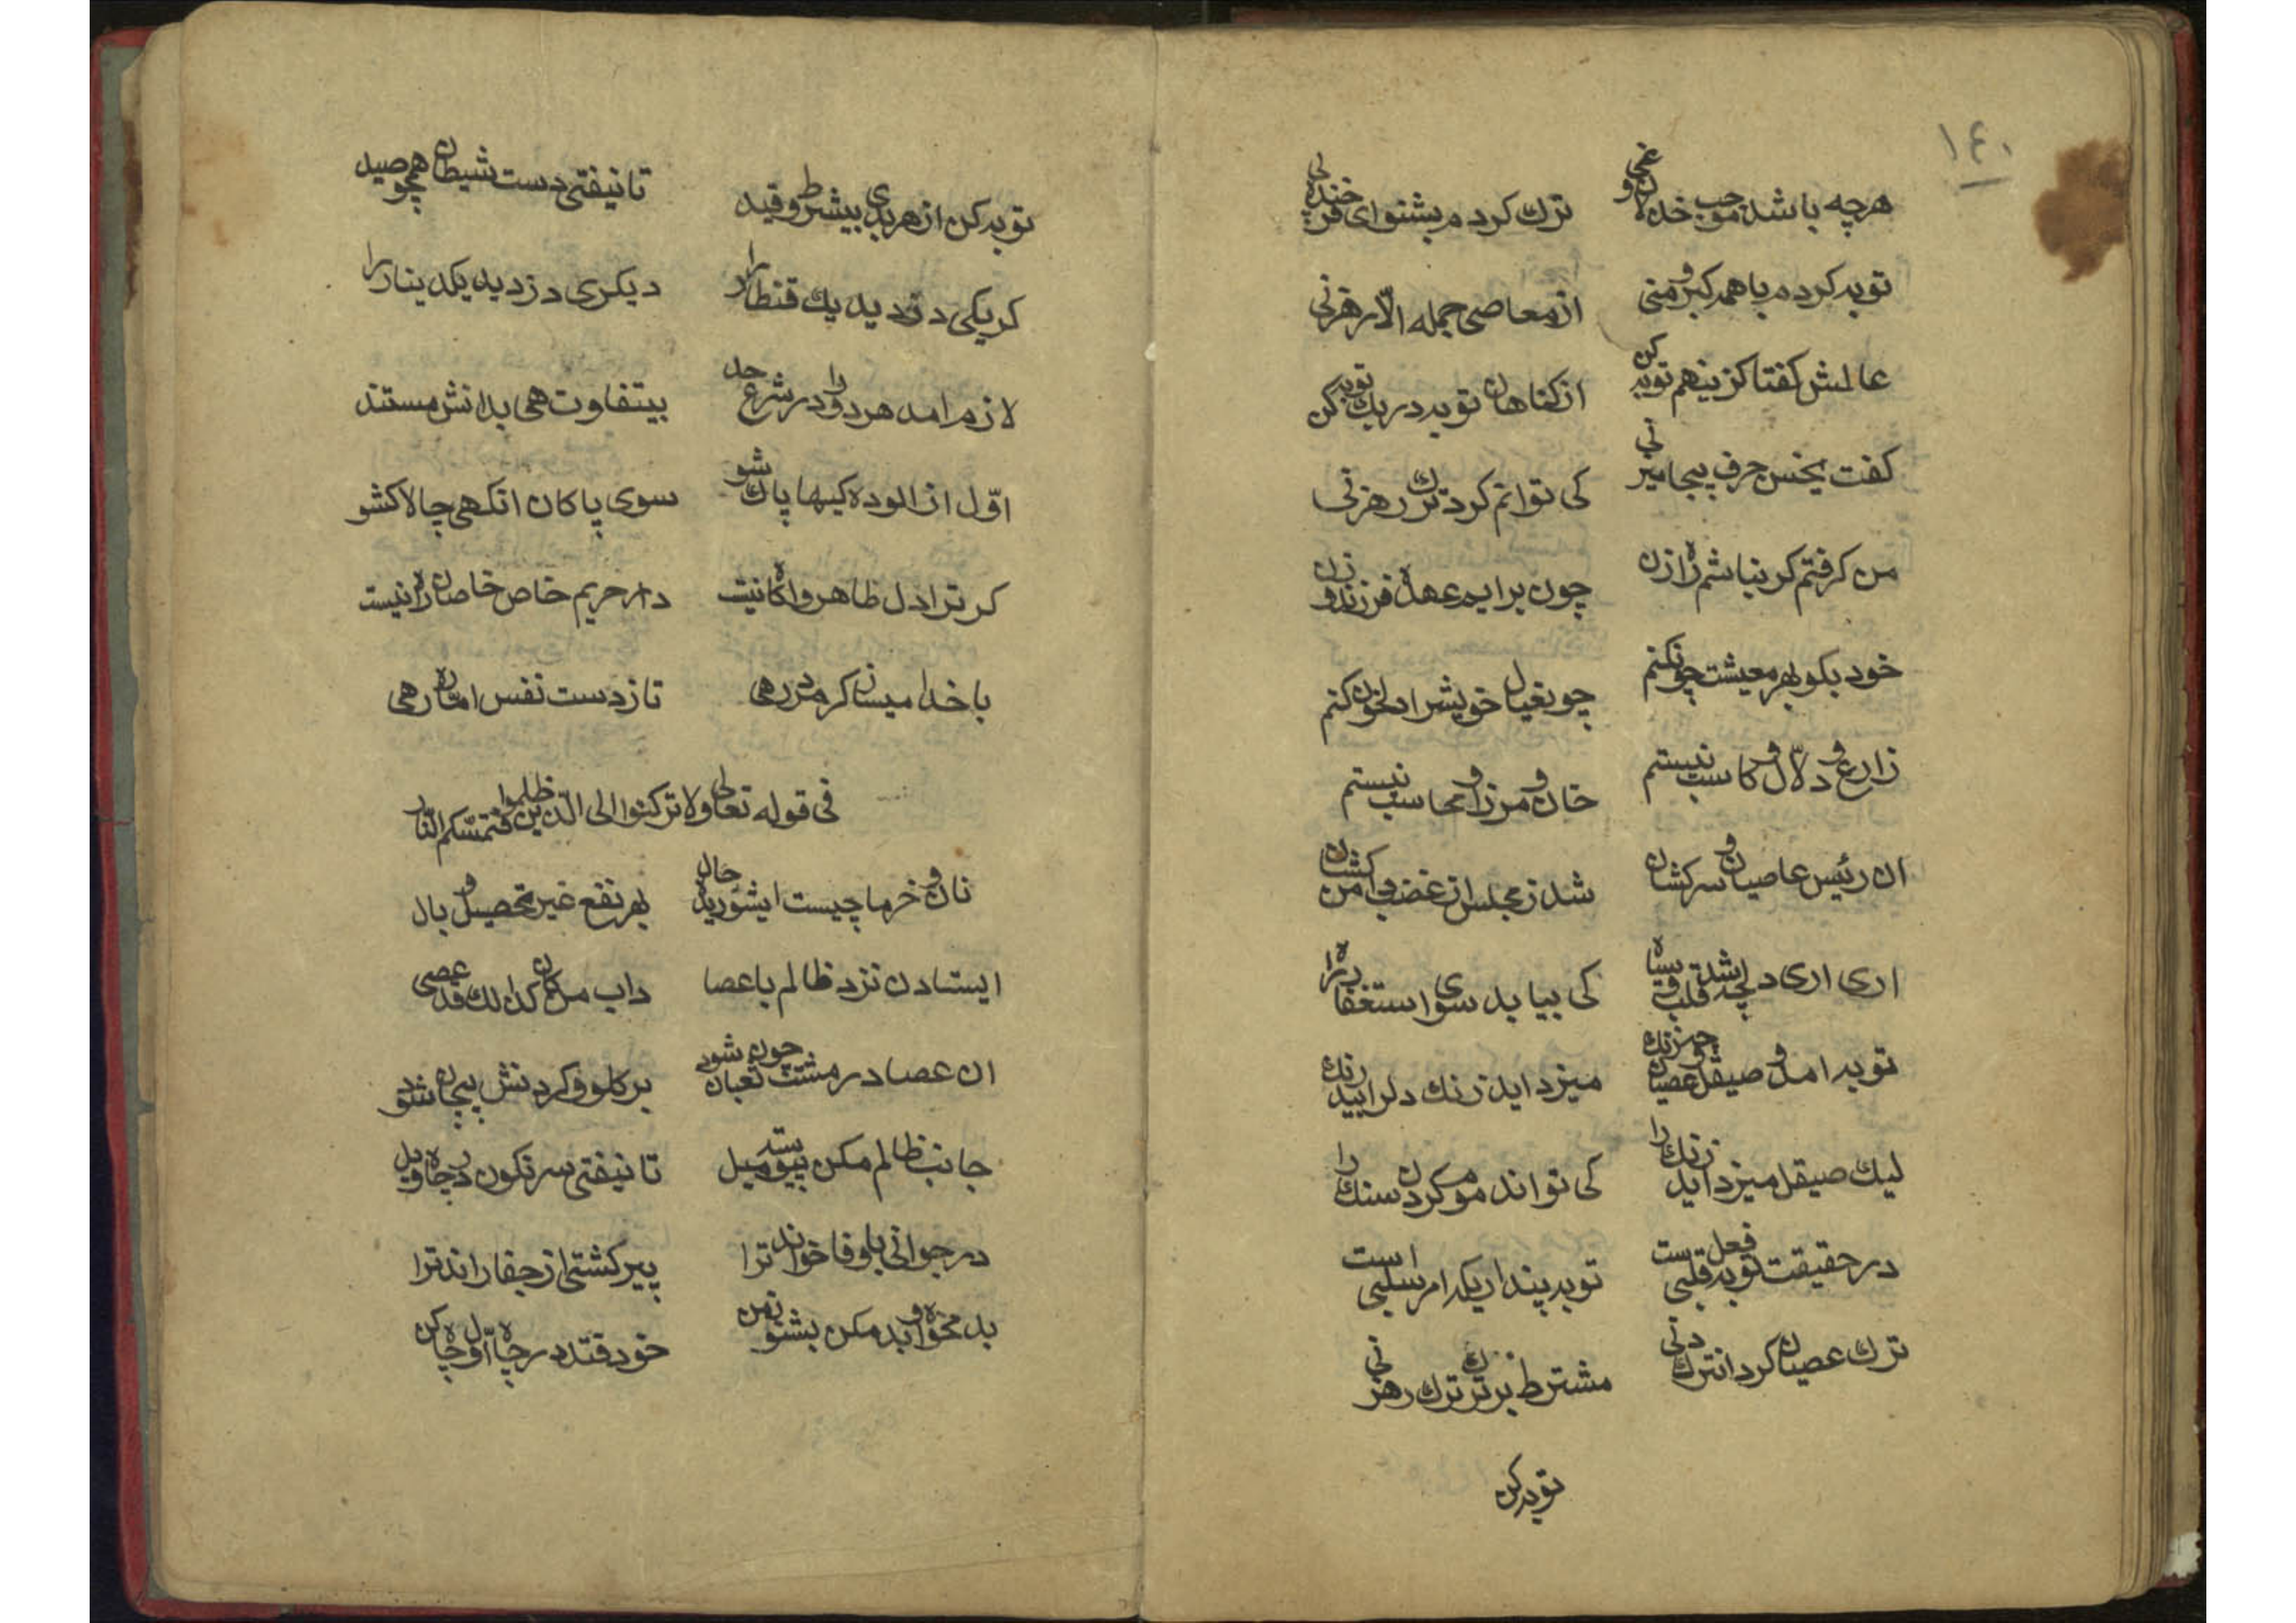 ١٤٠
هرچه باشد موجب خذلان و غی ترك كردم بشنو ای فرخنده پی
توبه كردم با همه كبر و منی از معاصی جمله الّا رهزنی
عالمش كفتا كزینهم توبه كن از كناهان توبه در یك توبه كن
كفت یخنس حرف بیجا میزنی كی توانم كرد ترك رهزنی
من كرفتم كر نباشم راه زن چون برایم عهدهٔ فرزند و زن
خود بكو بهر معیشت چونكنم چو نغیال خویشرا دلخون كنم
زارع و دلّال و كاسب نیستم خان و مرزا و محاسب نیستم
ان رئیس عاصیان و سركشان شد ز مجلس از غضب دامن كشان
اری اری دل چه شد قلب و سیاه كی بیاید سوی استغفار راه
توبه امد صیقل و عصیان چو زنك میزداید زنك دلرا بیدرنك
لیك صیقل میزداید زنك را كی تواند موم كردن سنك را
در حقیقت توبه فعل قلبی ست توبه پنداریكه امر سلبی است
ترك عصیان كردن ترك دنی مشترط نبر ترك ترك رهزنی
توبه كن
توبه كن از هر بدی بیشرط و قید تا نیفتی دست شیطان همچو صید
كر یكی دزدید یك قنطار را دیكری دزدید یكدینار را
لازم امد هر دو را در شرع حد بیتفاوت هی بدانش مستند
اوّل از الوده كیها پاك شو سوی پاكان انكهی چالاك شو
كر ترا دل طاهر و اكاه نیست در حریم خاص خاصان راه نیست
با خدا میساز كر مرد رهی تا ز دست نفس امّاره رهی
فی قوله تعالی ولا تركنوا الی الّذین ظلموا فتمسّكم النّار
نان و خرما چیست ایشوریده حال بهر نفع غیر تحصیل و بال
ایستادن نزد ظالم با عصا داب من كان كذلك قد عصی
ان عصا در مشت چون ثعبان شود بر كلو و كردنش پیچان شود
جانب ظالم مكن پیوسته میل تا نیفتی سرنكون در چاه ویل
در جوانی با وفا خواند ترا پیر كشتی از جفا راند ترا
بد مخواه و بد مكن بشنو ز من خود فتد در چاه اوّل چاه كن